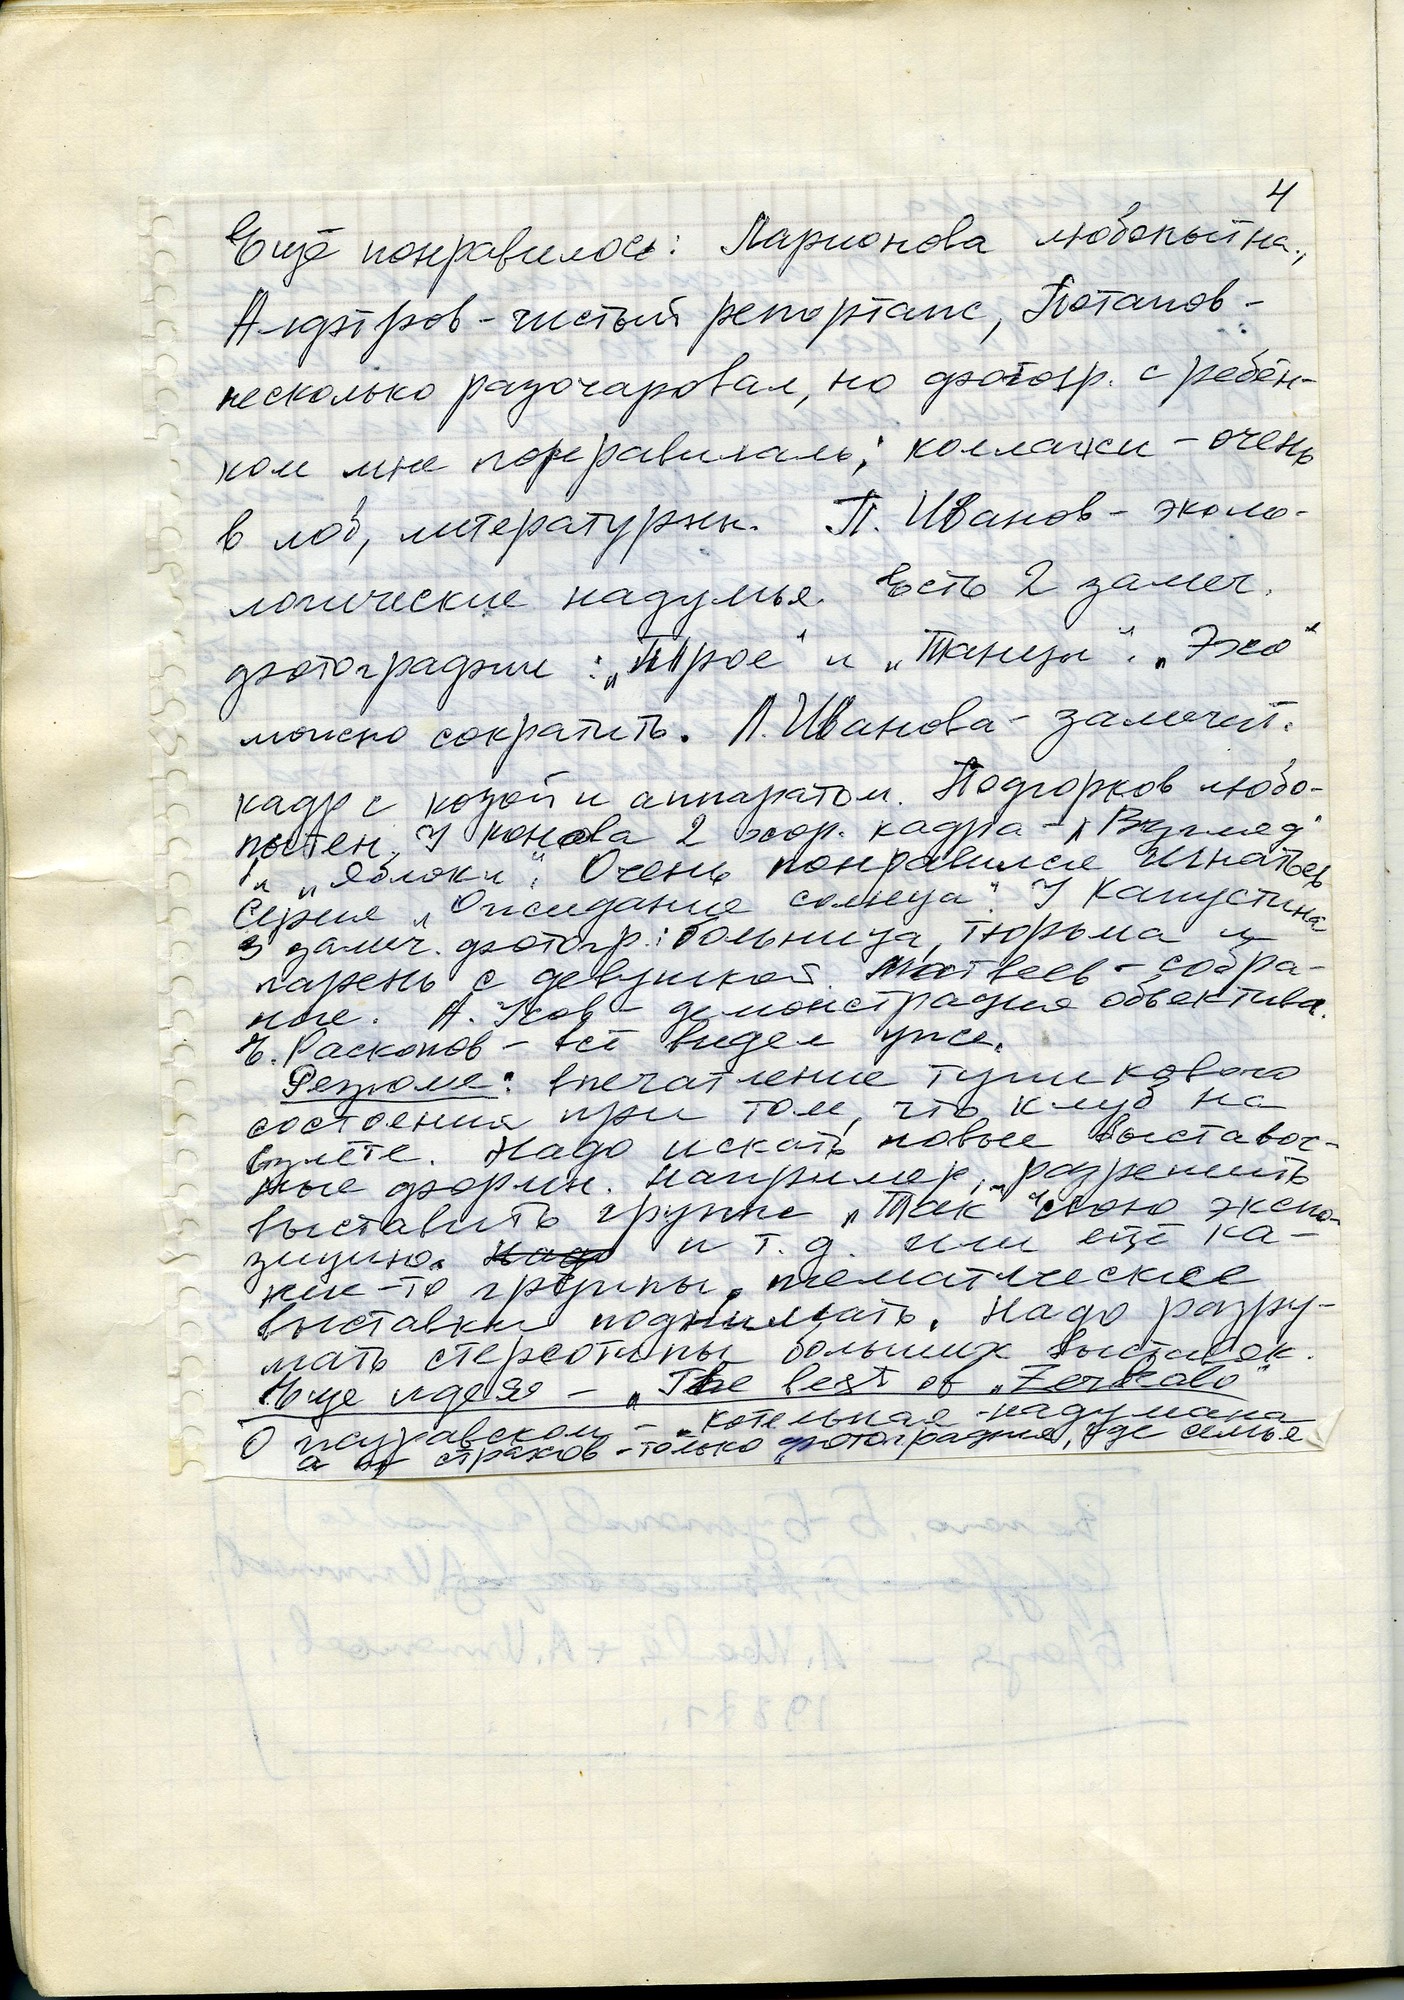 4
Ещё понравилось: Ларионова любопытна,
А-лдтров - чистый репортаж, Потапов -
несколько разочаровал, но фотогр. с ребён-
ком мне понравилась; коллажи - очень
в лоб, литературны. П. Иванов - эколо-
логические надумья. Есть 2 замеч.
фотографии: „Трое“ и „Танцы“. „Эхо“
можно сократить. Л. Иванова - замечат.
кадр с козой и аппаратом. Подгорков любо-
пытен. У Конова 2 хор. кадра - „Взгляд“
и „Яблоки“. Очень понравился Игнатьев
Серия „Ожидание солнца“. У Капустина
3 замеч. фотогр.: больница, тюрьма и
парень с девушкой. Матвеев - собра-
ние. А. Усов - демонстрация объектива.
Е. Раскопов - всё видел уже.
Резюме: впечатление тупикового
состояния при том, что клуб на
взлёте. Надо искать новые выставоч-
ные формы. Например, разрешить
выставить группе „Так“ свою экспо-
зицию. Надо и т. д. или ещё ка-
кик-то группы, тематические
выставки поднимать. Надо разру-
шать стереотипы больших выставок.
Еще идея - „The best of „Zerkalo“
О Журавском - „котельная - надумана
а страхов - только фотография, где семья
1987 г.